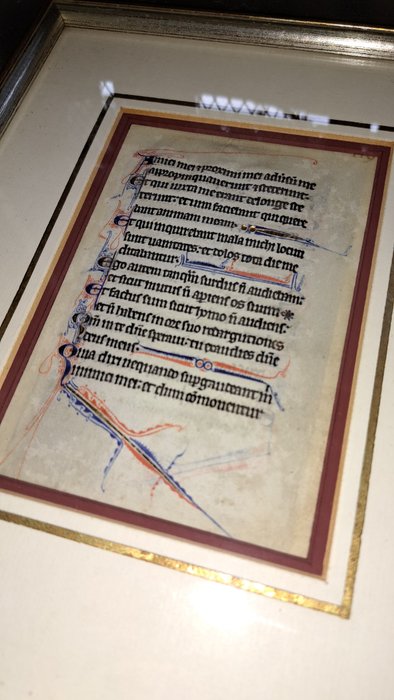 Amici mei ⁊ proximi mei adūsū me
appropinquauerunt ⁊ steterunt.
Et qui iuxta me erant de longe ste
terunt. et uim faciebant qui quere
bant animam meam.
Et qui inquirebant mala michi locuti
sunt uanitates. et dolos tota die me
ditabantur.
Ego autem tanqͣm surdus ñ audiebam.
et sicut mutus ñ aperiens os suum
Et factus sum sicut homo ñ audiens.
et ñ habens in ore suo redargutiones
Qm̄ in te dñe speraui. tu exaudies dñe
deus meus.
Quia dixi nequando supgaudeant m̄
inimici mei. et dum cōmouentur